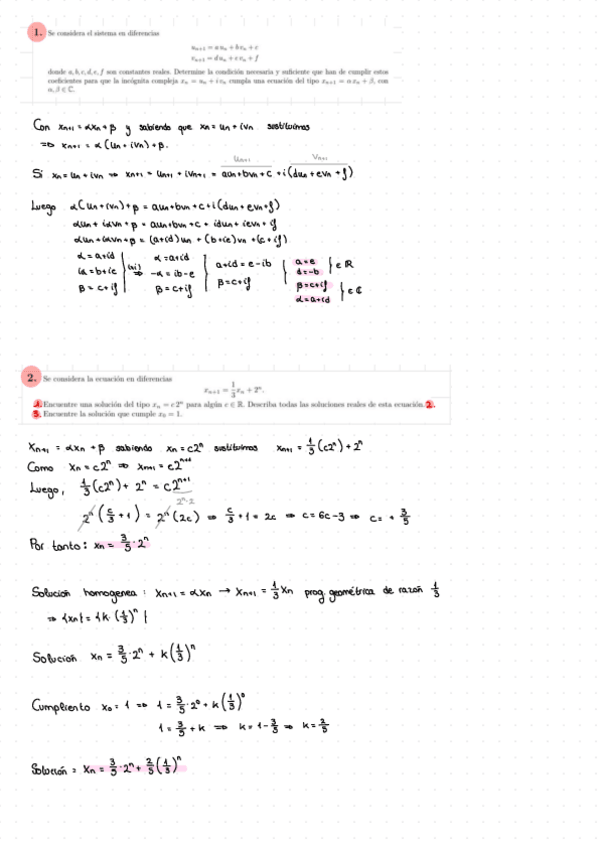 1. Se considera el sistema en diferencias
uₙ₊₁ = a uₙ + b vₙ + c
vₙ₊₁ = d uₙ + e vₙ + f
donde a, b, c, d, e, f son constantes reales. Determine la condición necesaria y suficiente que han de cumplir estos
coeficientes para que la incógnita compleja xₙ = uₙ + i vₙ, cumpla una ecuación del tipo xₙ₊₁ = α xₙ + β, con
α, β ∈ ℂ.
Con xₙ₊₁ = αxₙ + β y sabiendo que xₙ = uₙ + ivₙ sustituimos
⇒ xₙ₊₁ = α(uₙ + ivₙ) + β.
uₙ₊₁ vₙ₊₁
Si xₙ = uₙ + ivₙ ⇒ xₙ₊₁ = uₙ₊₁ + ivₙ₊₁ = auₙ + bvₙ + c + i(duₙ + evₙ + f)
Luego α(uₙ + ivₙ) + β = auₙ + bvₙ + c + i(duₙ + evₙ + f)
αuₙ + iαvₙ + β = auₙ + bvₙ + c + iduₙ + ievₙ + if
αuₙ + iαvₙ + β = (a + id)uₙ + (b + ie)vₙ + (c + if)
α = a + id | α = a + id | a + id = e - ib | a = e } ∈ ℝ
iα = b + ie | (·i) ⇒ -α = ib - e | β = c + if | d = -b
β = c + if | β = c + if | β = c + if } ∈ ℂ
α = a + id
2. Se considera la ecuación en diferencias
xₙ₊₁ = 1/3 xₙ + 2ⁿ.
1. Encuentre una solución del tipo xₙ = c 2ⁿ para algún c ∈ ℝ. Describa todas las soluciones reales de esta ecuación 2.
3. Encuentre la solución que cumple x₀ = 1.
xₙ₊₁ = αxₙ + β sabiendo xₙ = c2ⁿ sustituimos xₙ₊₁ = 1/3 (c2ⁿ) + 2ⁿ
Como xₙ = c2ⁿ ⇒ xₙ₊₁ = c2ⁿ⁺¹
Luego, 1/3 (c2ⁿ) + 2ⁿ = c2ⁿ⁺¹
2ⁿ·2
2ⁿ (c/3 + 1) = 2ⁿ (2c) ⇒ c/3 + 1 = 2c ⇒ c = 6c - 3 ⇒ c = + 3/5
Por tanto: xₙ = 3/5 · 2ⁿ
Solución homogenea : xₙ₊₁ = αxₙ → xₙ₊₁ = 1/3 xₙ prog. geométrica de razón 1/3
⇒ {xₙ} = {k · (1/3)ⁿ}
Solución xₙ = 3/5 · 2ⁿ + k(1/3)ⁿ
Cumpliento x₀ = 1 ⇒ 1 = 3/5 · 2⁰ + k(1/3)⁰
1 = 3/5 + k ⇒ k = 1 - 3/5 ⇒ k = 2/5
Solución = xₙ = 3/5 · 2ⁿ + 2/5 (1/3)ⁿ